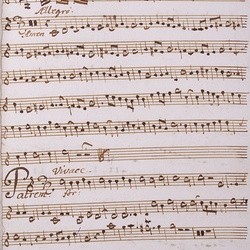 Allegro.
Amen
Vivace
Patrem
for